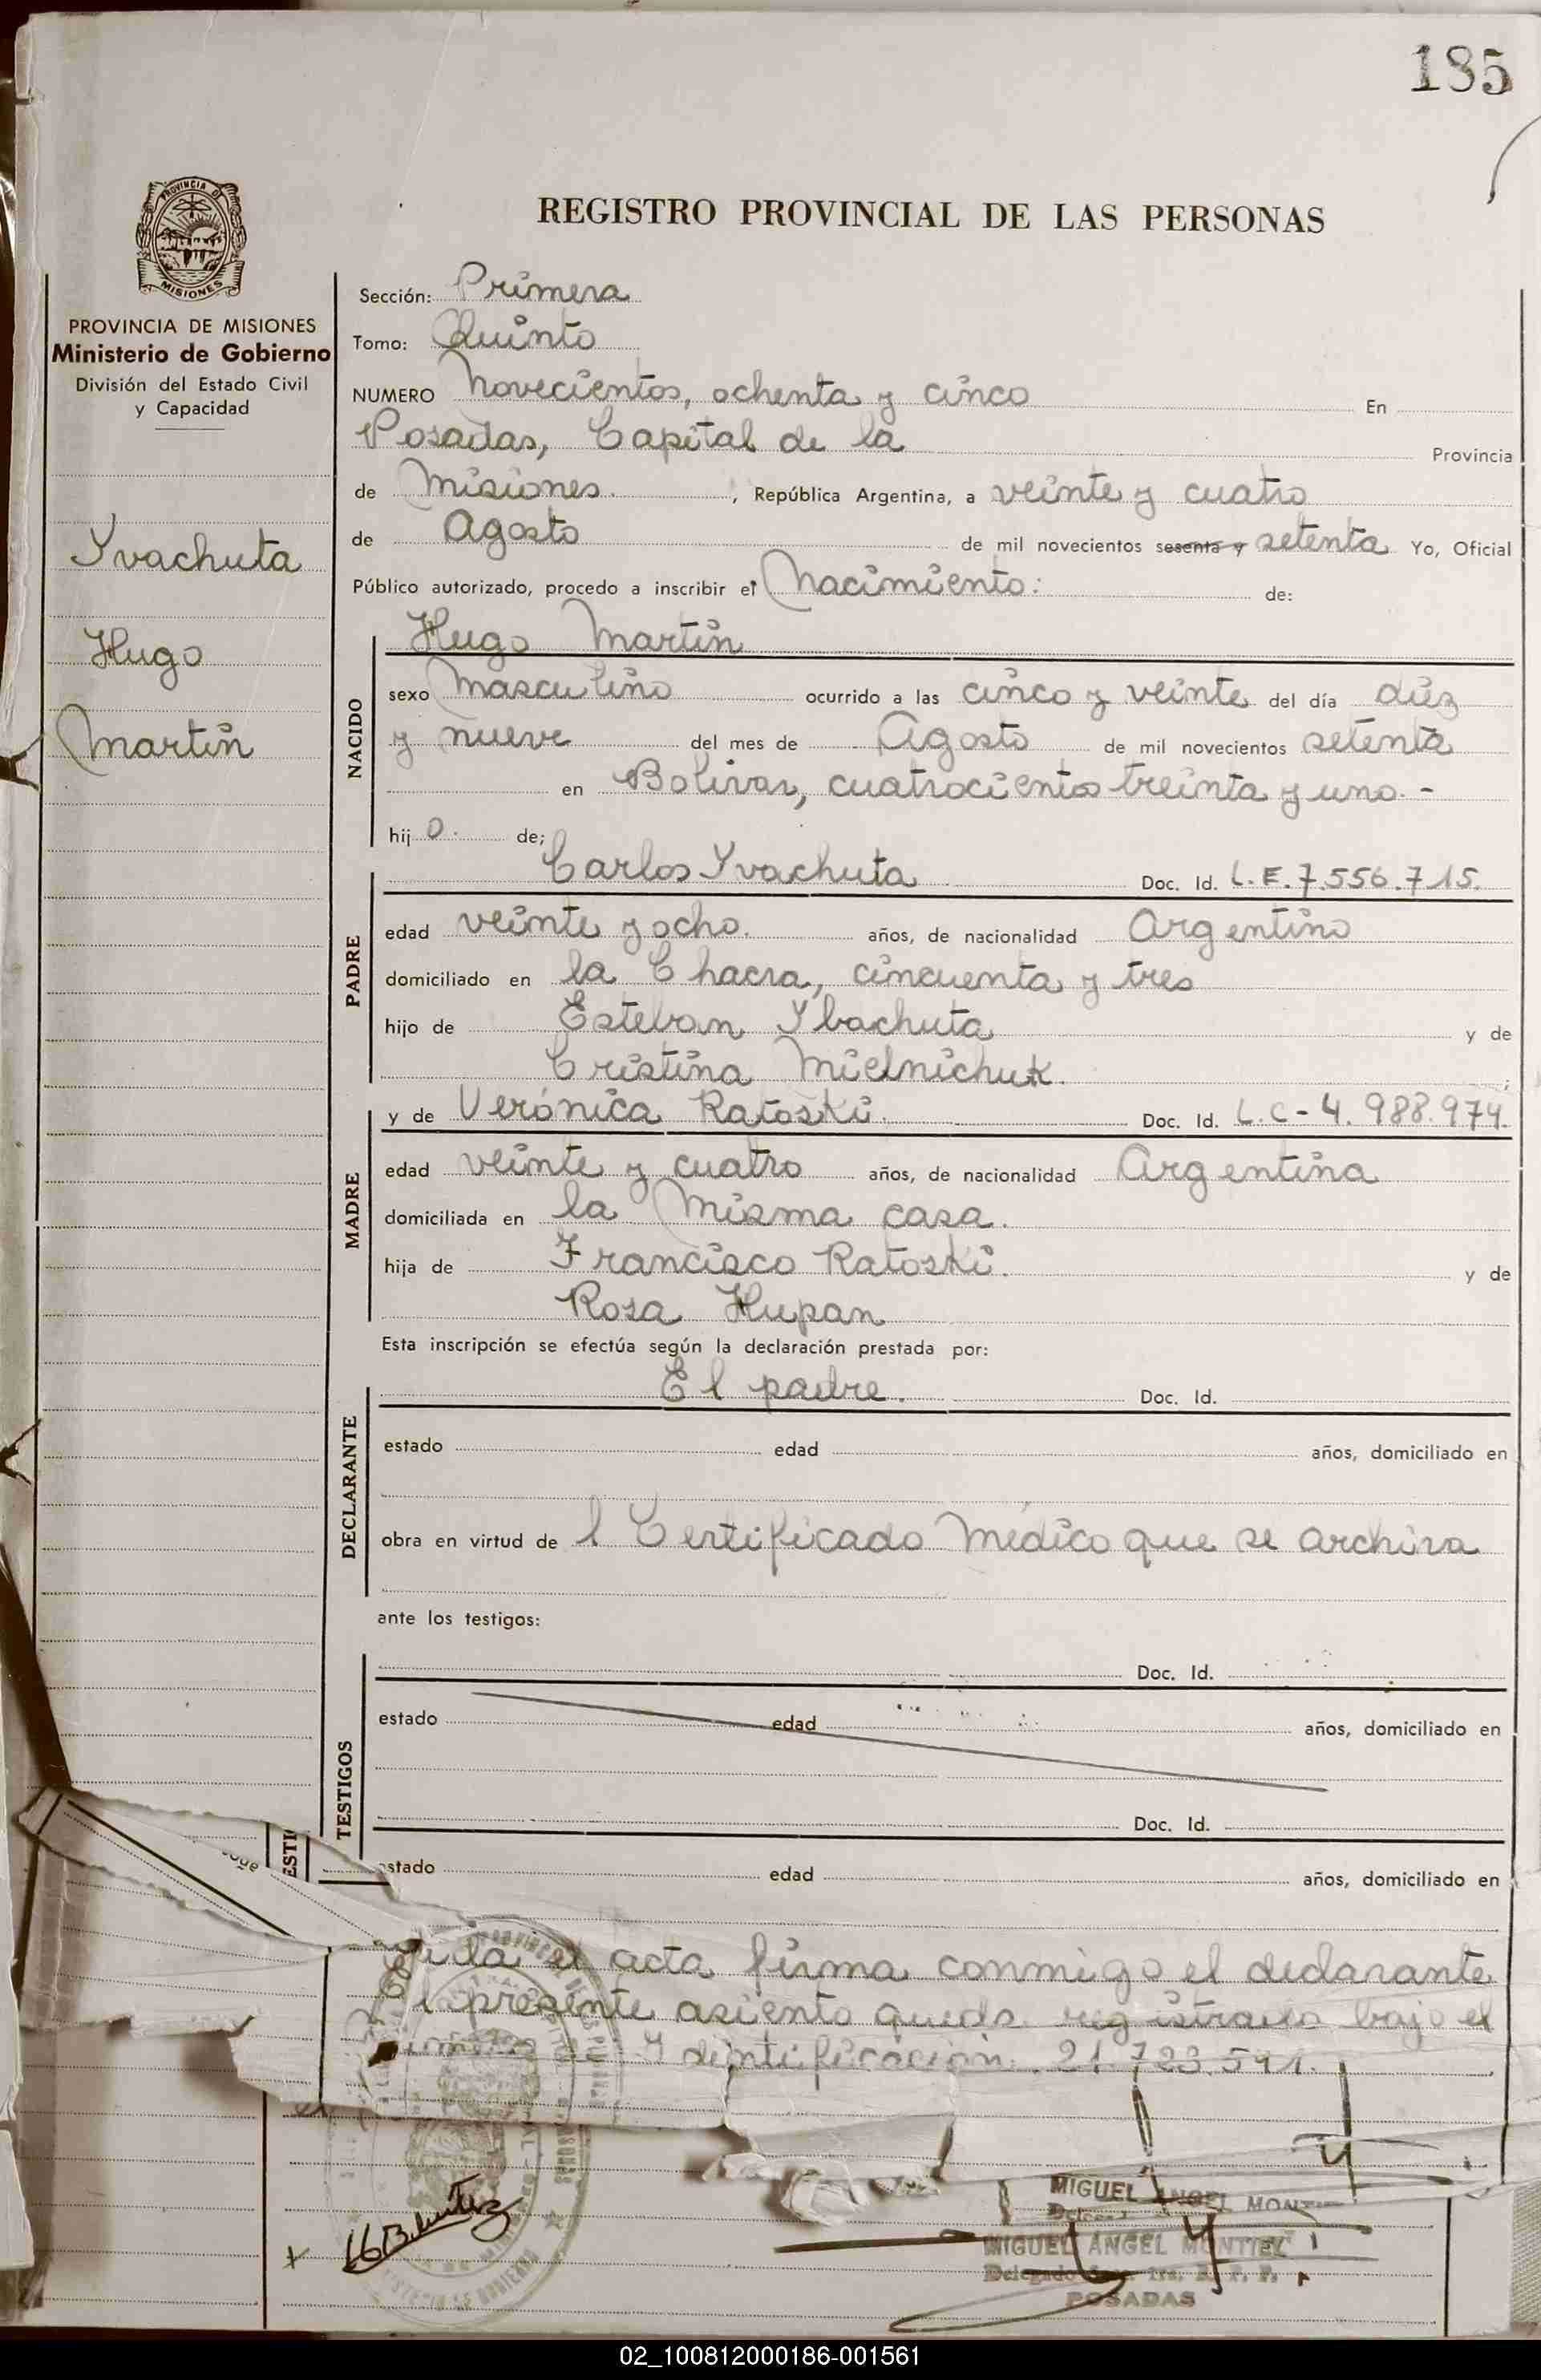 185
REGISTRO PROVINCIAL DE LAS PERSONAS
PROVINCIA DE MISIONES
Ministerio de Gobierno
División del Estado Civil
y Capacidad
Yvachuta
Hugo
Martín
Sección: Primera
Tomo: Quinto
NUMERO Novecientos, ochenta y cinco En
Posadas, Capital de la Provincia
de Misiones. , República Argentina, a veinte y cuatro
de Agosto de mil novecientos sesenta y setenta Yo, Oficial
Público autorizado, procedo a inscribir el Nacimiento: de:
Hugo Martín
NACIDO
sexo Masculino ocurrido a las cinco y veinte del día diez
y nueve del mes de Agosto de mil novecientos setenta
en Bolivar, cuatrocientos treinta y uno.-
hij o. de;
Carlos Yvachuta Doc. Id. L.E.7.556.715.
PADRE
edad veinte y ocho. años, de nacionalidad Argentino
domiciliado en la Chacra, cincuenta y tres
hijo de Esteban Ybachuta y de
Cristina Mielnichuk.
y de Verónica Ratoski. Doc. Id. L.C-4.988.974.
MADRE
edad veinte y cuatro años, de nacionalidad Argentina
domiciliada en la Misma casa.
hija de Francisco Ratoski. y de
Rosa Hupan
Esta inscripción se efectúa según la declaración prestada por:
El padre. Doc. Id.
DECLARANTE
estado edad años, domiciliado en
obra en virtud de l Certificado Médico que se archiva
ante los testigos:
Doc. Id.
TESTIGOS
estado edad años, domiciliado en
Doc. Id.
estado edad años, domiciliado en
el acta firma conmigo el declarante
El presente asiento queda registrado bajo el
de Identificación. 21.723.541.
MIGUEL ANGEL
MIGUEL ANGEL MONTIEL
Delegado
POSADAS
02_100812000186-001561